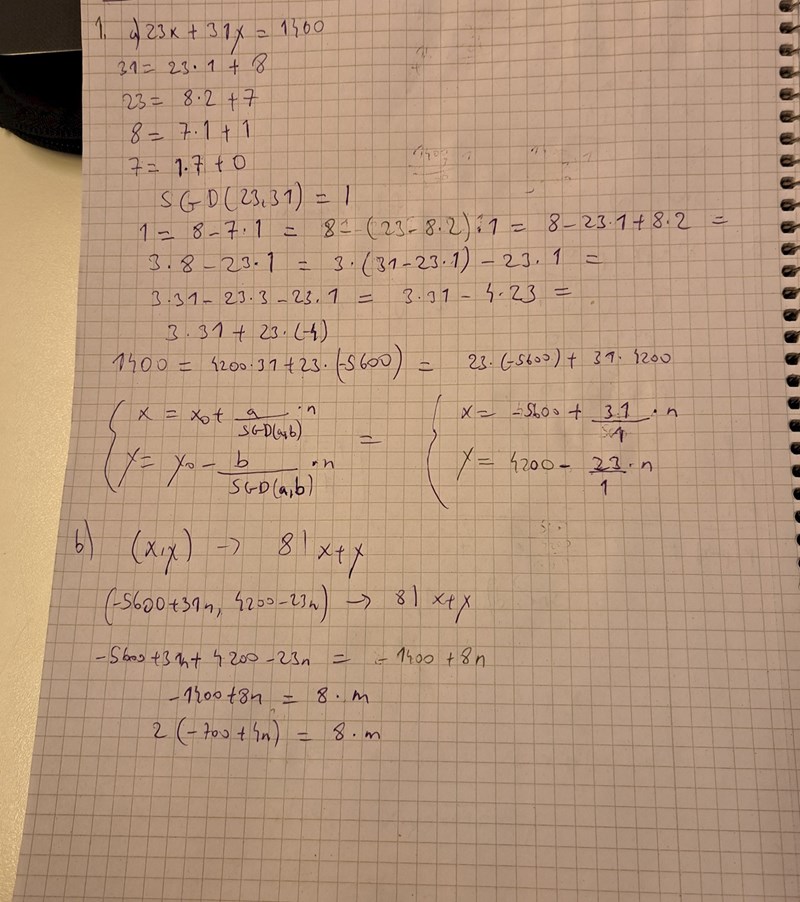 1. a) 23x + 31y = 1400
31 = 23·1 + 8
23 = 8·2 + 7
8 = 7·1 + 1
7 = 1·7 + 0
SGD(23,31) = 1
1 = 8 - 7·1 = 8 - (23 - 8·2)·1 = 8 - 23·1 + 8·2 =
3·8 - 23·1 = 3·(31 - 23·1) - 23·1 =
3·31 - 23·3 - 23·1 = 3·31 - 4·23 =
3·31 + 23·(-4)
1400 = 4200·31 + 23·(-5600) = 23·(-5600) + 31·4200
{ x = x₀ + a/SGD(a,b) · n = { x = -5600 + 31/1 · n
y = y₀ - b/SGD(a,b) · n y = 4200 - 23/1 · n
b) (x,y) → 8 | x+y
(-5600+31n, 4200-23n) → 8 | x+y
-5600+31n + 4200-23n = -1400 + 8n
-1400+8n = 8·m
2(-700+4n) = 8·m